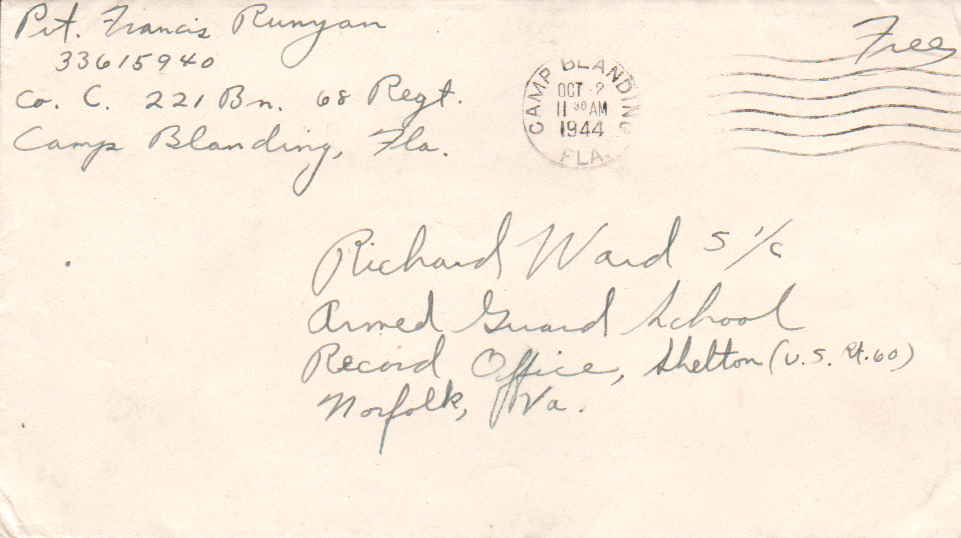 Pvt. Francis Runyan
33615940
Co. C. 221 Bn. 68 Regt.
Camp Blanding, Fla.
Free
CAMP BLANDING
OCT 2
11 30 AM
1944
FLA.
Richard Ward S 1/c
Armed Guard School
Record Office, Shelton (U.S. Rt. 60)
Norfolk, Va.